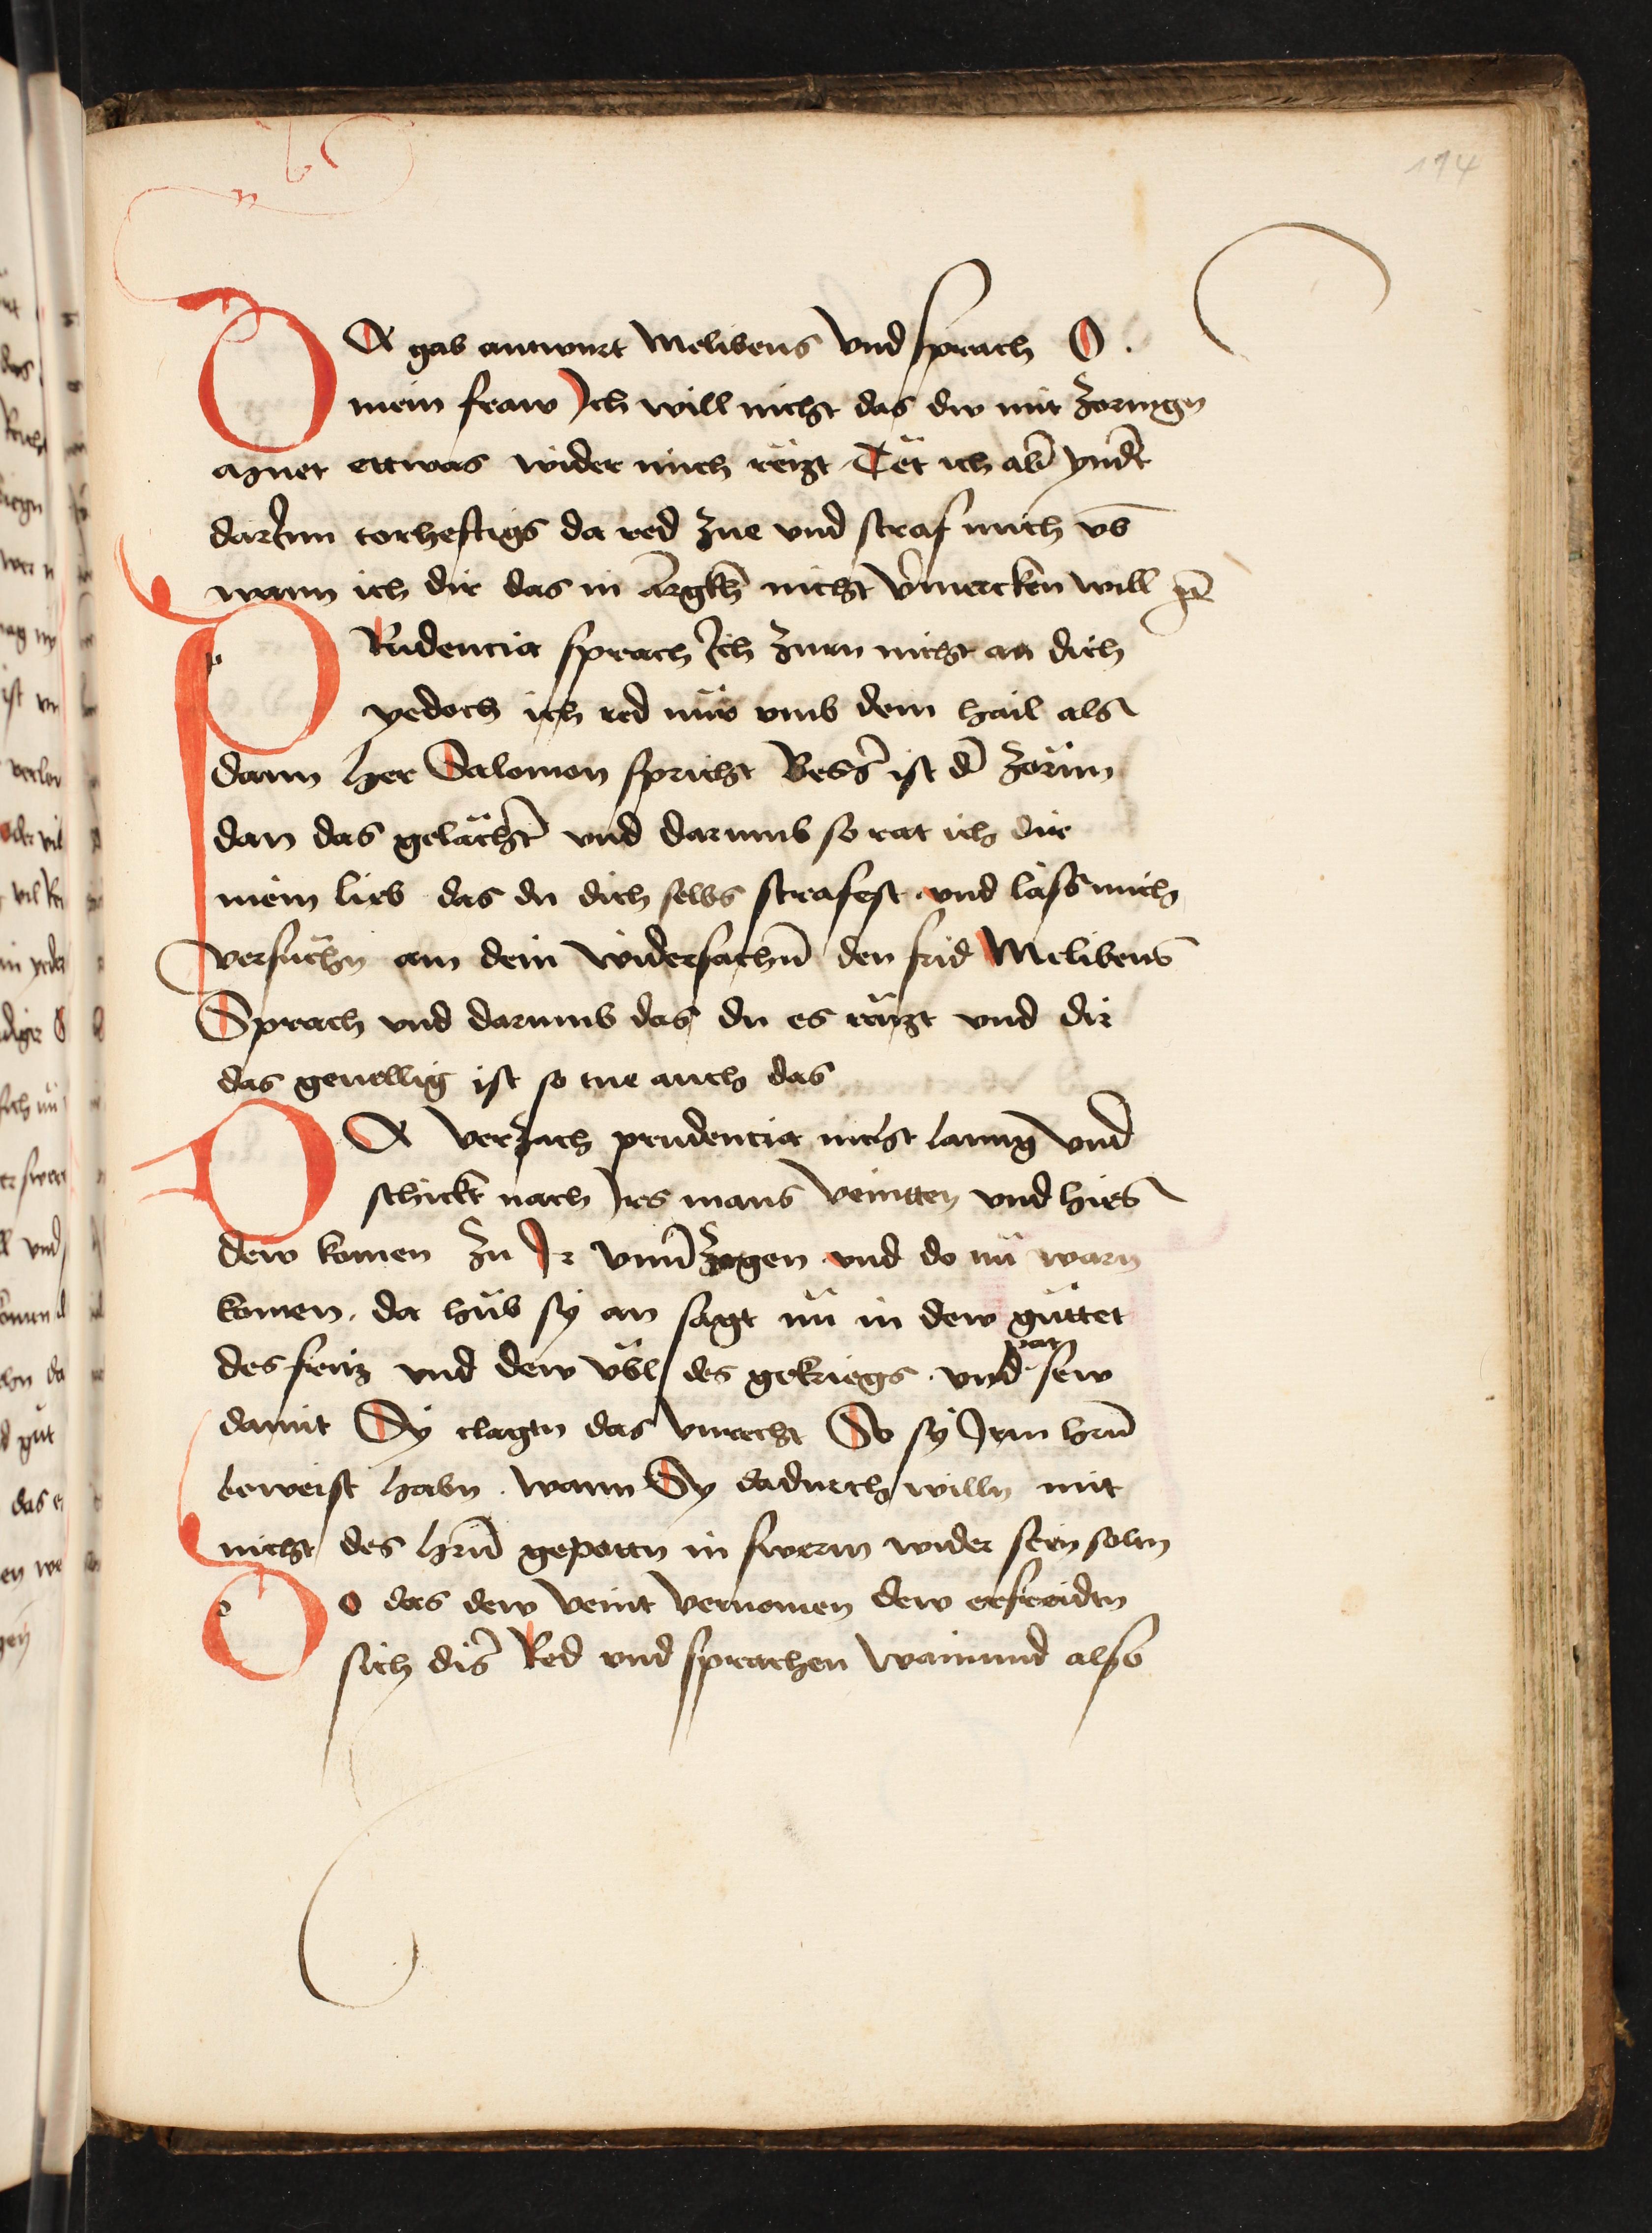 174
Da gab antwurt Melibeus vnd sprach O.
mein fraw Jch will nicht das dw mit zornign
agner ettwas wider mich reizt Tët ich ab̄ yndt̄
darJnn torheftigs da red zue vnd straf mich vb̄
wann ich dir das in Argkh̄ nicht v̄mercken will
Prudencia sprach Jch zürn nicht an dich
yedoch ich red nür vmb dein hail als
dann her Salomon spricht Bess̄ ist d̄ zörnn
dan das gelächt̄ vnd darumb so rat ich dir
mein lieb das du dich selbs strafest vnd läss mich
versuchn an dein widersachn̄ den frid Melibeus
Sprach vnd darumb das du es räizt vnd dir
das geuellig ist so tue auch das
Da verzach prudencia nicht lanng vnd
schickt nach Jrs mans veintten vnd hies
dew komen zu Jr vnu̅zogen vnd do nü warn
komen. da hüb sy an sagt nü in dew güttet
des friz vnd dew vbl des gekriegs. vnd pat sew
damit Sy clagtn das vnrecht So sy Jrm hrn̄
beweist habn. wann Sy dadurch willn mit
nicht des hrn̄ gepottn in swern wider sein soltn
Do das dew veint vernomen dew erfreidtn
sich dis̄ Red vnd sprachen wainund also